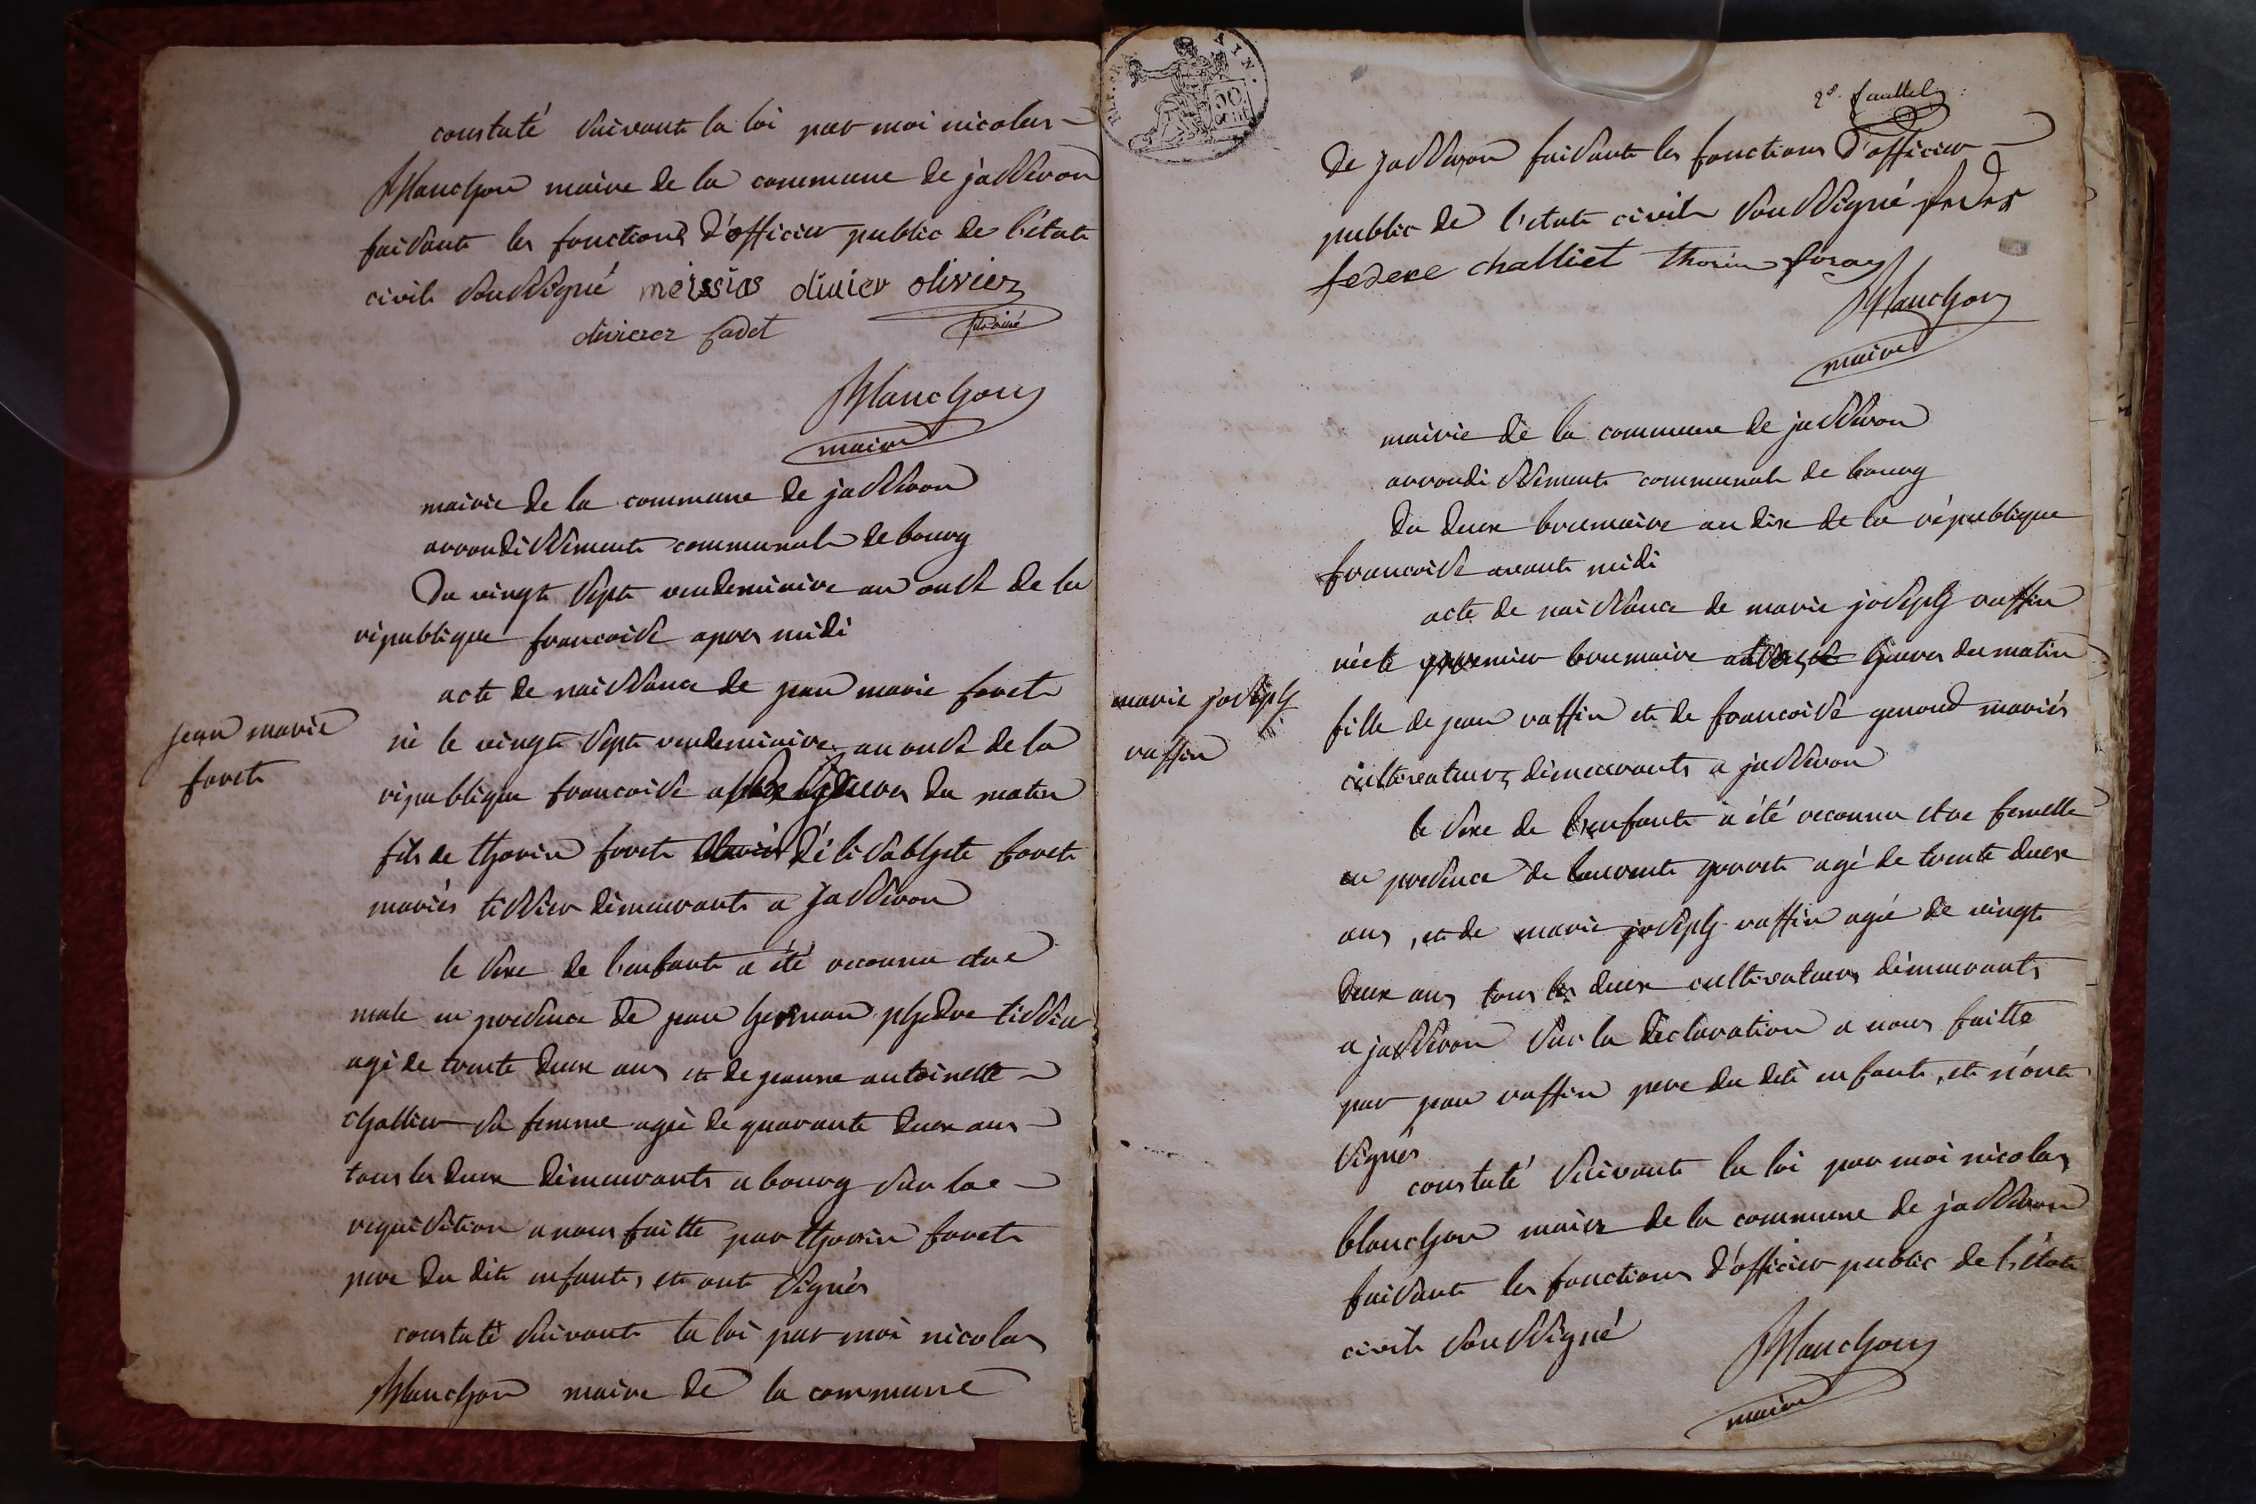 constaté suivante la loi par moi nicolas
Blanchon maire de la commune de jasseron
faisante les fonctions d'officier public de l'état
civile soussigné meissias olivier olivier
fils ainé
olivierer cadet
Blanchon
maire
mairie de la commune de jasseron
arrondissement communale de bourg
Du vingt sept vendemiaire an onse de la
république francoise apres midi
acte de naissance de jean marie foret
jean marie
foret
né le vingt sept vendemiaire an onse de la
république francoise a heures du matin
fils de thorin foret d'élisabhete foret
mariés tissier démeurants a jasseron
le sexe de l'enfante a été reconnu etre
male en presence de jean phedre tissier
agé de trente deux ans et de jeanne antoinette
challier sa femme agée de quarante deux ans
tous les deux démeurants a bourg sur la
requisition a nous faitte par thorin foret
pere du dite enfante, et ont signés
constaté suivante la loi par moi nicolas
Blanchon maire de la commune
28.
de jasseron faisante les fonctions d'officier
public de l'état civile soussigné
federe challiet thorin foray
Blanchon
maire
mairie de la commune de jasseron
arrondissement communale de bourg
du deux brumaire an dix de la république
francoise avante midi
acte de naissance de marie joseph raffin
née le premier brumaire heures du matin
marie joseph
raffin
fille de jean raffin et de francoise genoud mariés
cultivateurs démeurants a jasseron
le sexe de l'enfante a été reconnu etre femelle
en presence de laurente agé de trente deux
ans, et de marie joseph raffin agée de vingt
deux ans tous les deux cultivateurs démeurants
a jasseron sur la déclaration a nous faitte
par jean raffin pere du dite enfante, et n'ont
signés
constaté suivante la loi par moi nicolas
blanchon maire de la commune de jasseron
faisante les fonctions d'officier public de l'état
civile soussigné
Blanchon
maire